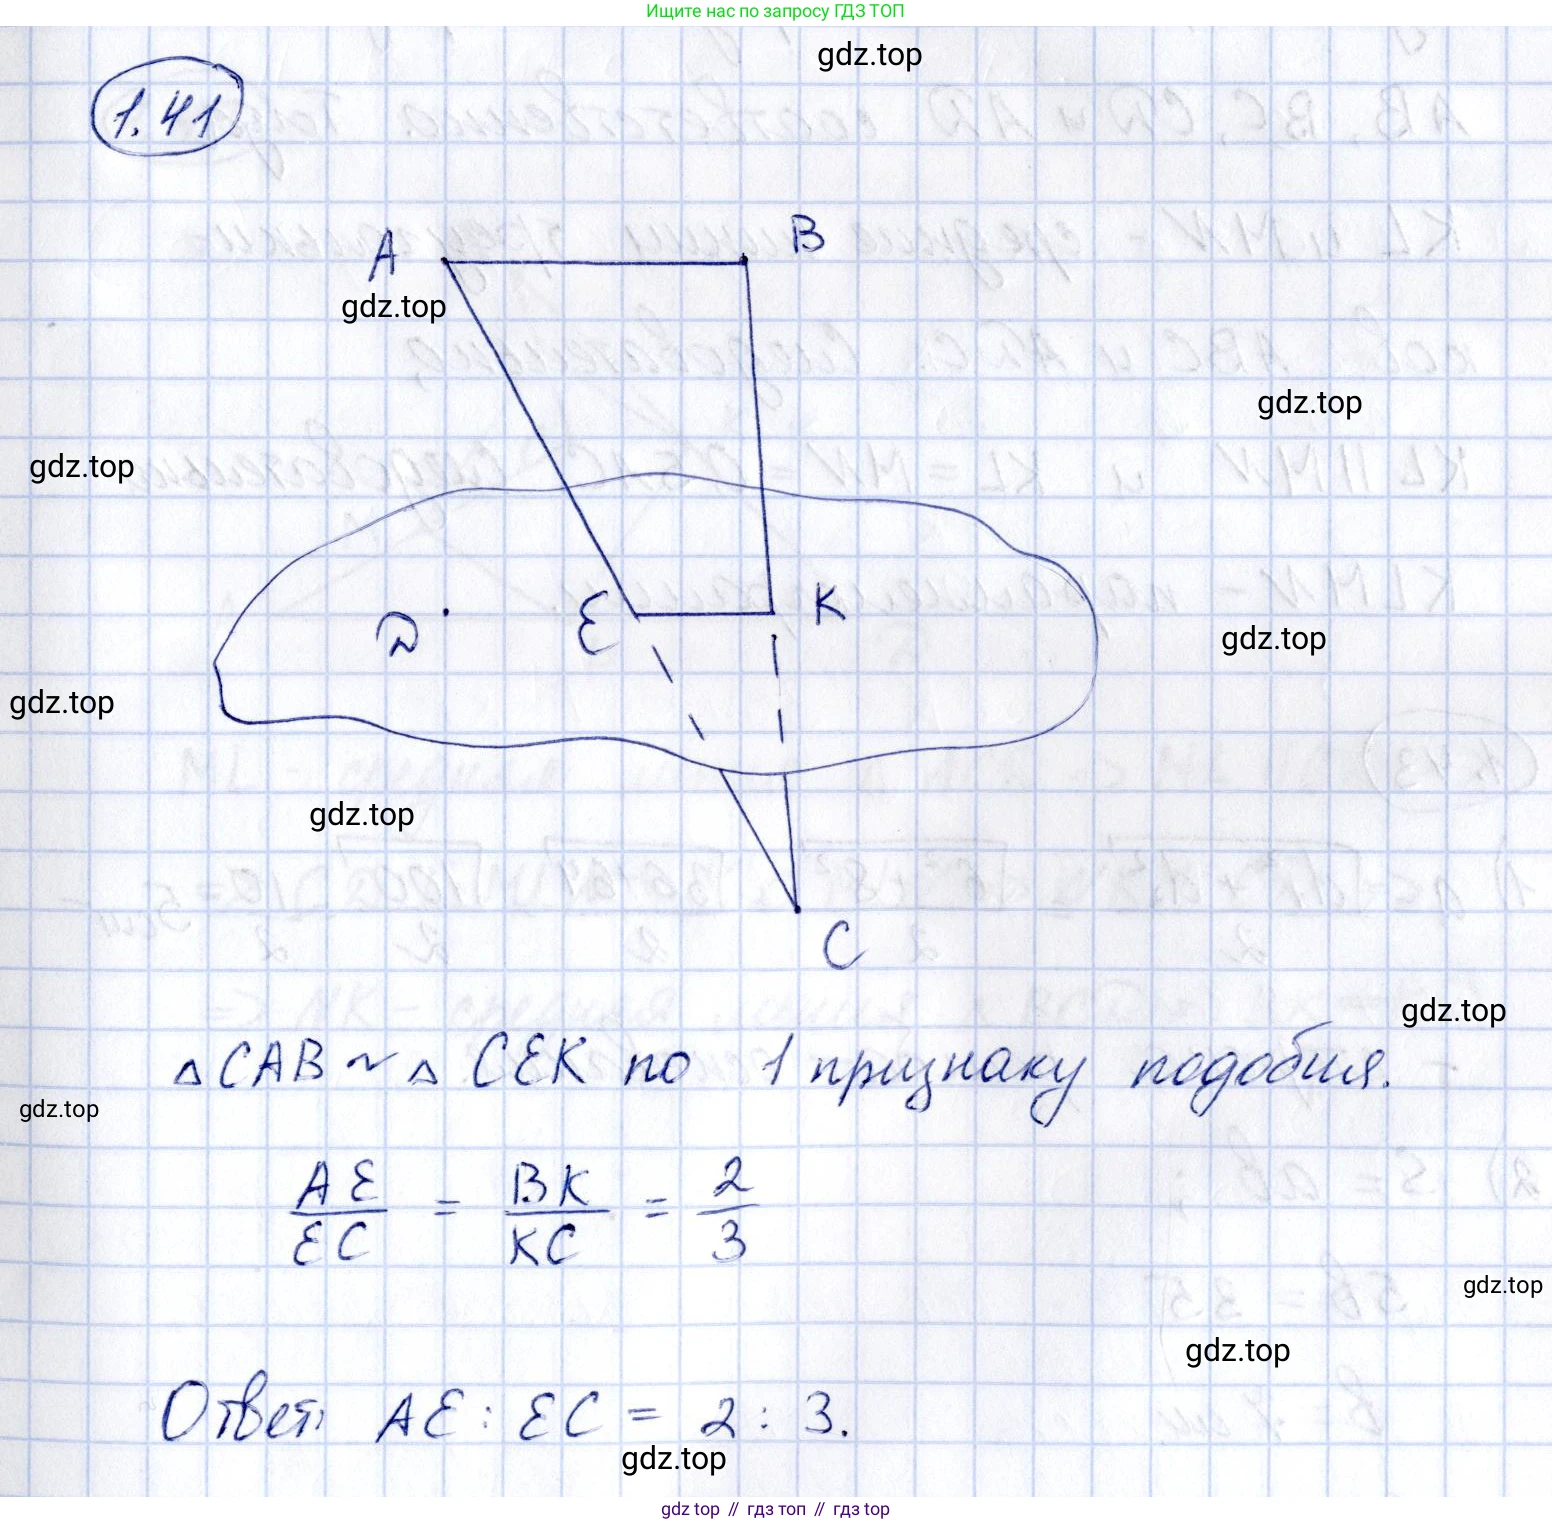 Ищите нас по запросу ГДЗ ТОП
gdz.top
1.41
A
B
gdz.top
gdz.top
gdz.top
E
K
gdz.top
gdz.top
gdz.top
C
gdz.top
△CAB ~ △CEK по 1 признаку подобия.
gdz.top
AE/EC = BK/KC = 2/3
gdz.top
gdz.top
Ответ: AE : EC = 2 : 3.
gdz.top
gdz top // гдз топ // гдз top